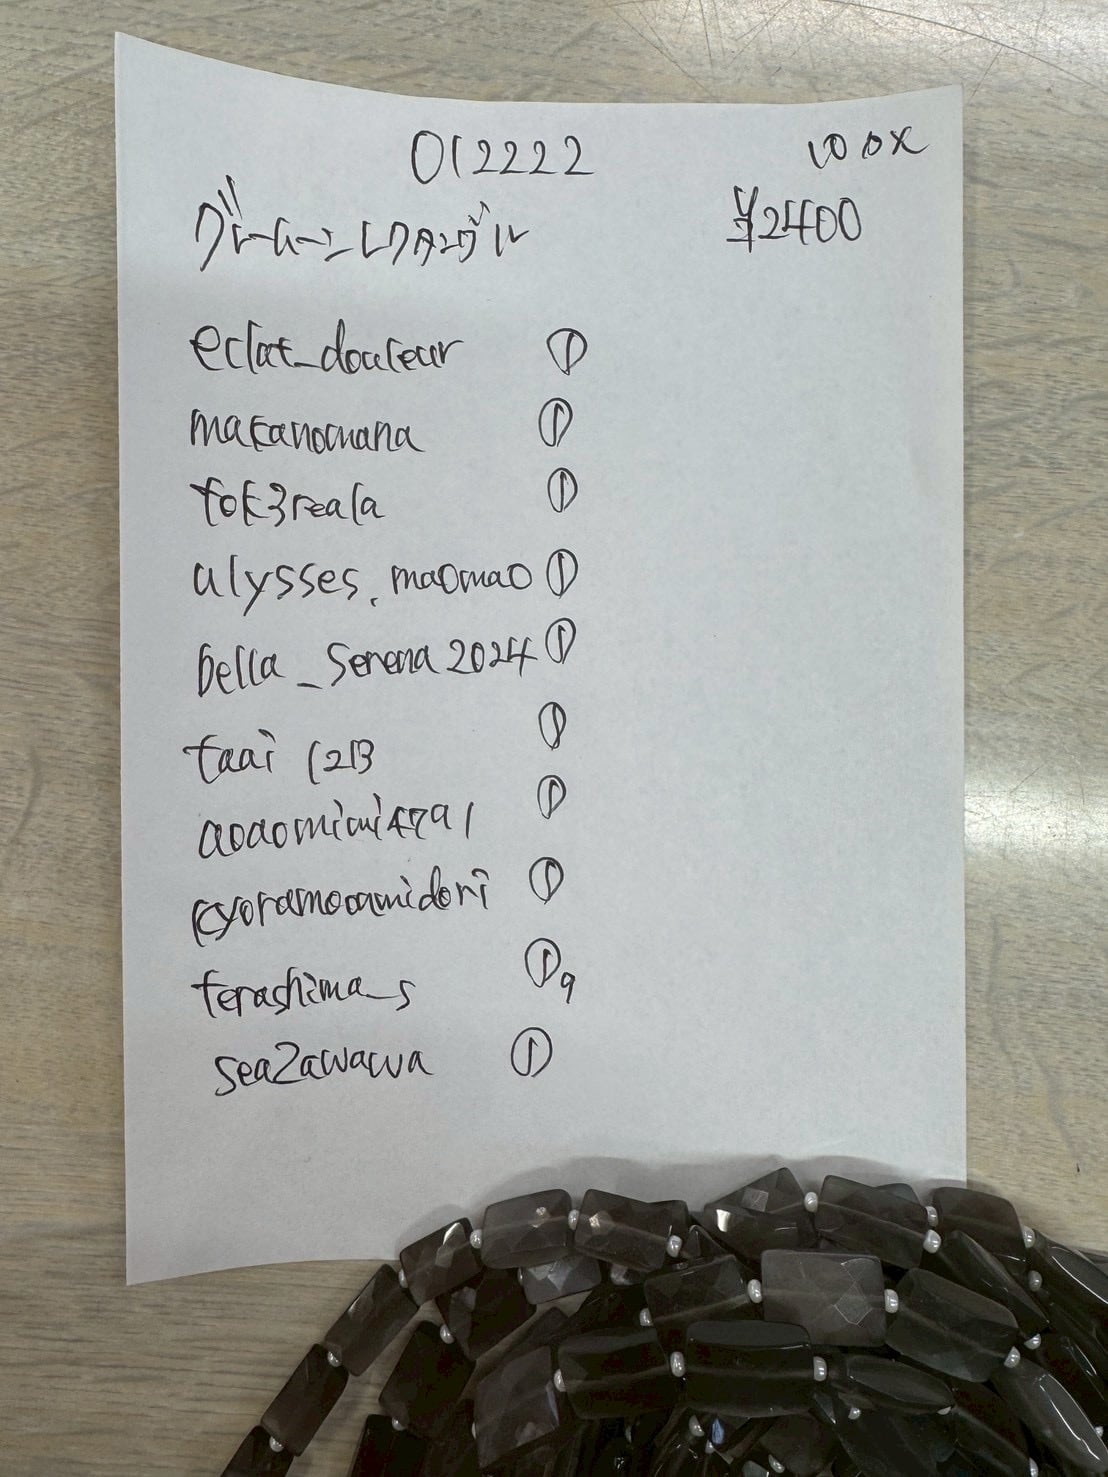 012222
¥2400
グレームーンレクタングル
eclat_douceur ①
makanomana ①
tok3reala ①
ulysses.maomao ①
bella_serena2024 ①
taai1213 ①
aoaomimi4791 ①
kyoramooamidori ①
terashima_s ①
seazawawa ①